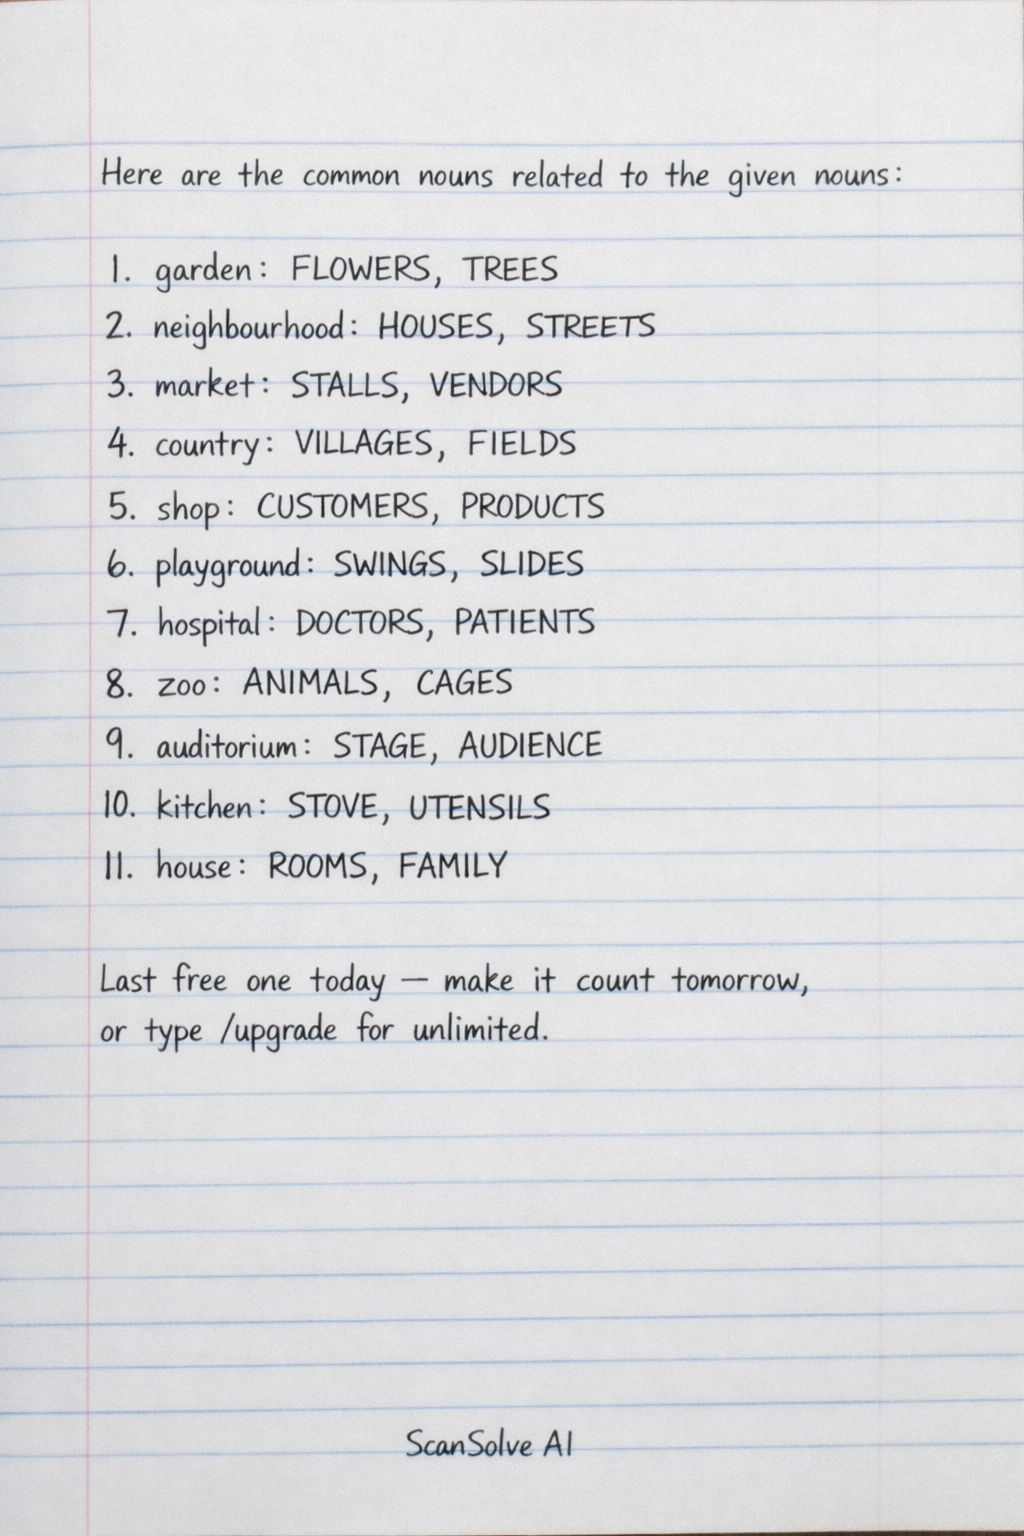 Here are the common nouns related to the given nouns:
1. garden: FLOWERS, TREES
2. neighbourhood: HOUSES, STREETS
3. market: STALLS, VENDORS
4. country: VILLAGES, FIELDS
5. shop: CUSTOMERS, PRODUCTS
6. playground: SWINGS, SLIDES
7. hospital: DOCTORS, PATIENTS
8. zoo: ANIMALS, CAGES
9. auditorium: STAGE, AUDIENCE
10. kitchen: STOVE, UTENSILS
11. house: ROOMS, FAMILY
Last free one today — make it count tomorrow,
or type /upgrade for unlimited.
ScanSolve AI